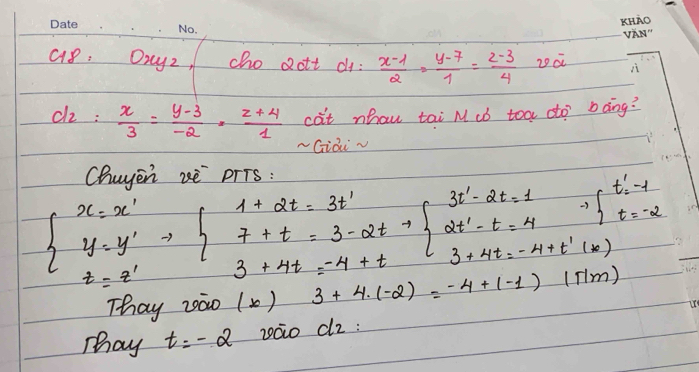 Date . . . No.
KHẢO
VĂN"
C18: Oxyz, cho 2đtt d1: x-1/2 = y-7/1 = z-3/4 và
d2: x/3 = y-3/-2 = z+4/1 cắt nhau tại M có toạ độ bằng?
~Giải~
Chuyển về PTTS:
{ x = x' → { 1 + 2t = 3t' → { 3t' - 2t = 1 → { t' = -1
y = y' 7 + t = 3 - 2t 2t' - t = 4 t = -2
z = z' 3 + 4t = -4 + t 3 + 4t = -4 + t' (*)
Thay vào (*) 3 + 4.(-2) = -4 + (-1) (T/m)
Thay t = -2 vào d2: